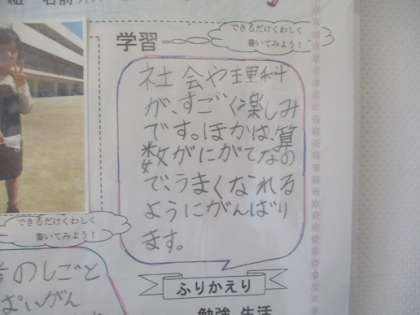 学習
できるだけくわしく
書いてみよう！
社会や理科
が、すごく楽しみ
です。ほかは、算
数がにがてなの
で、うまくなれる
ようにがんばり
ます。
できるだけくわしく
書いてみよう！
のしごと
ぱいがん
ふりかえり
勉強 生活